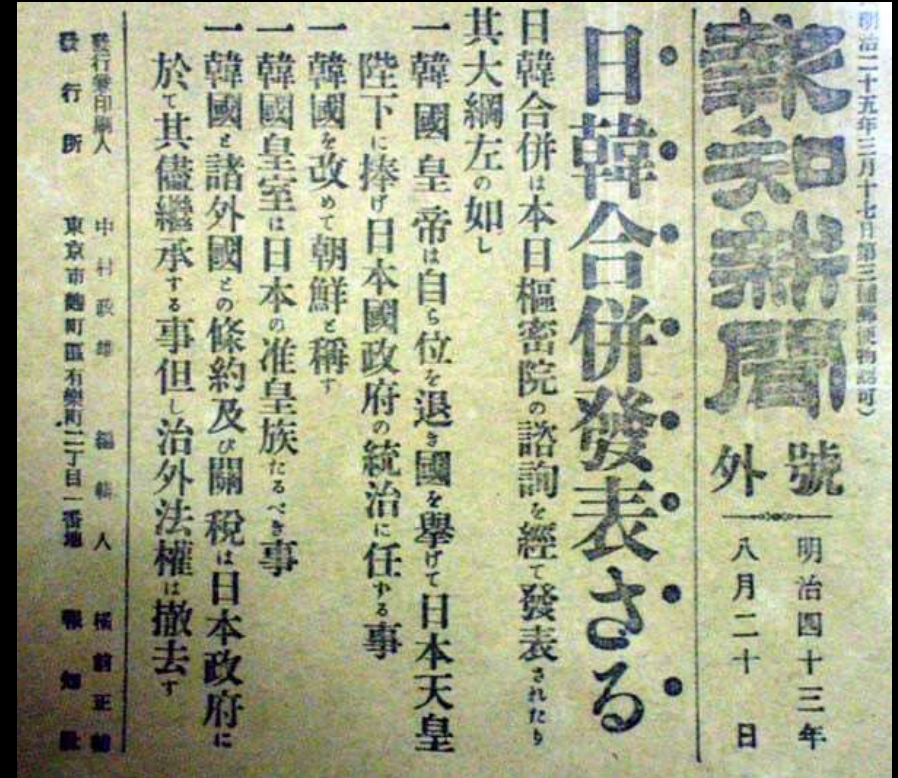 明治二十五年三月十七日第三種郵便物認可）
報知新聞
號外
明治四十三年
八月二十 日
日韓合併發表さる
日韓合併は本日樞密院の諮詢を經て發表されたり
其大綱左の如し
一韓國皇帝は自ら位を退き國を擧げて日本天皇
陛下に捧げ日本國政府の統治に任かる事
一韓國を改めて朝鮮と稱す
一韓國皇室は日本の准皇族たるべき事
一韓國と諸外國との條約及び關税は日本政府に
於て其儘繼承する事但し治外法權は撤去す
發行兼印刷人 中村政雄 編輯人 前正
發行所 東京市麹町區有樂町二丁目一番地 報知社